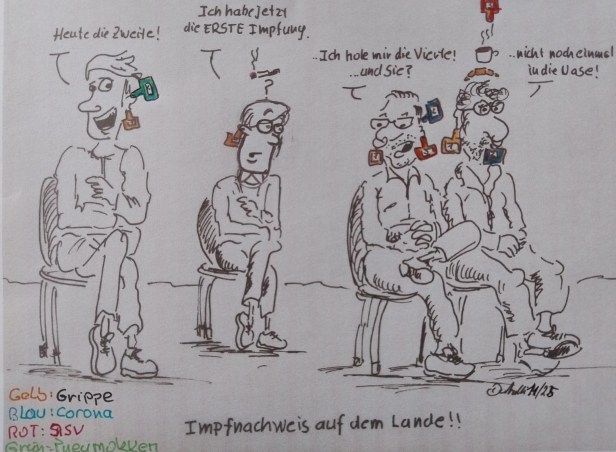 Heute die Zweite!
Ich habe jetzt
die ERSTE Impfung.
?
..Ich hole mir die Vierte!
...und Sie?
...nicht noch einmal
in die Vase!
Gelb: Grippe
Blau: Corona
ROT: RSV
Grün: Pneumokken
Impfnachweis auf dem Lande!!